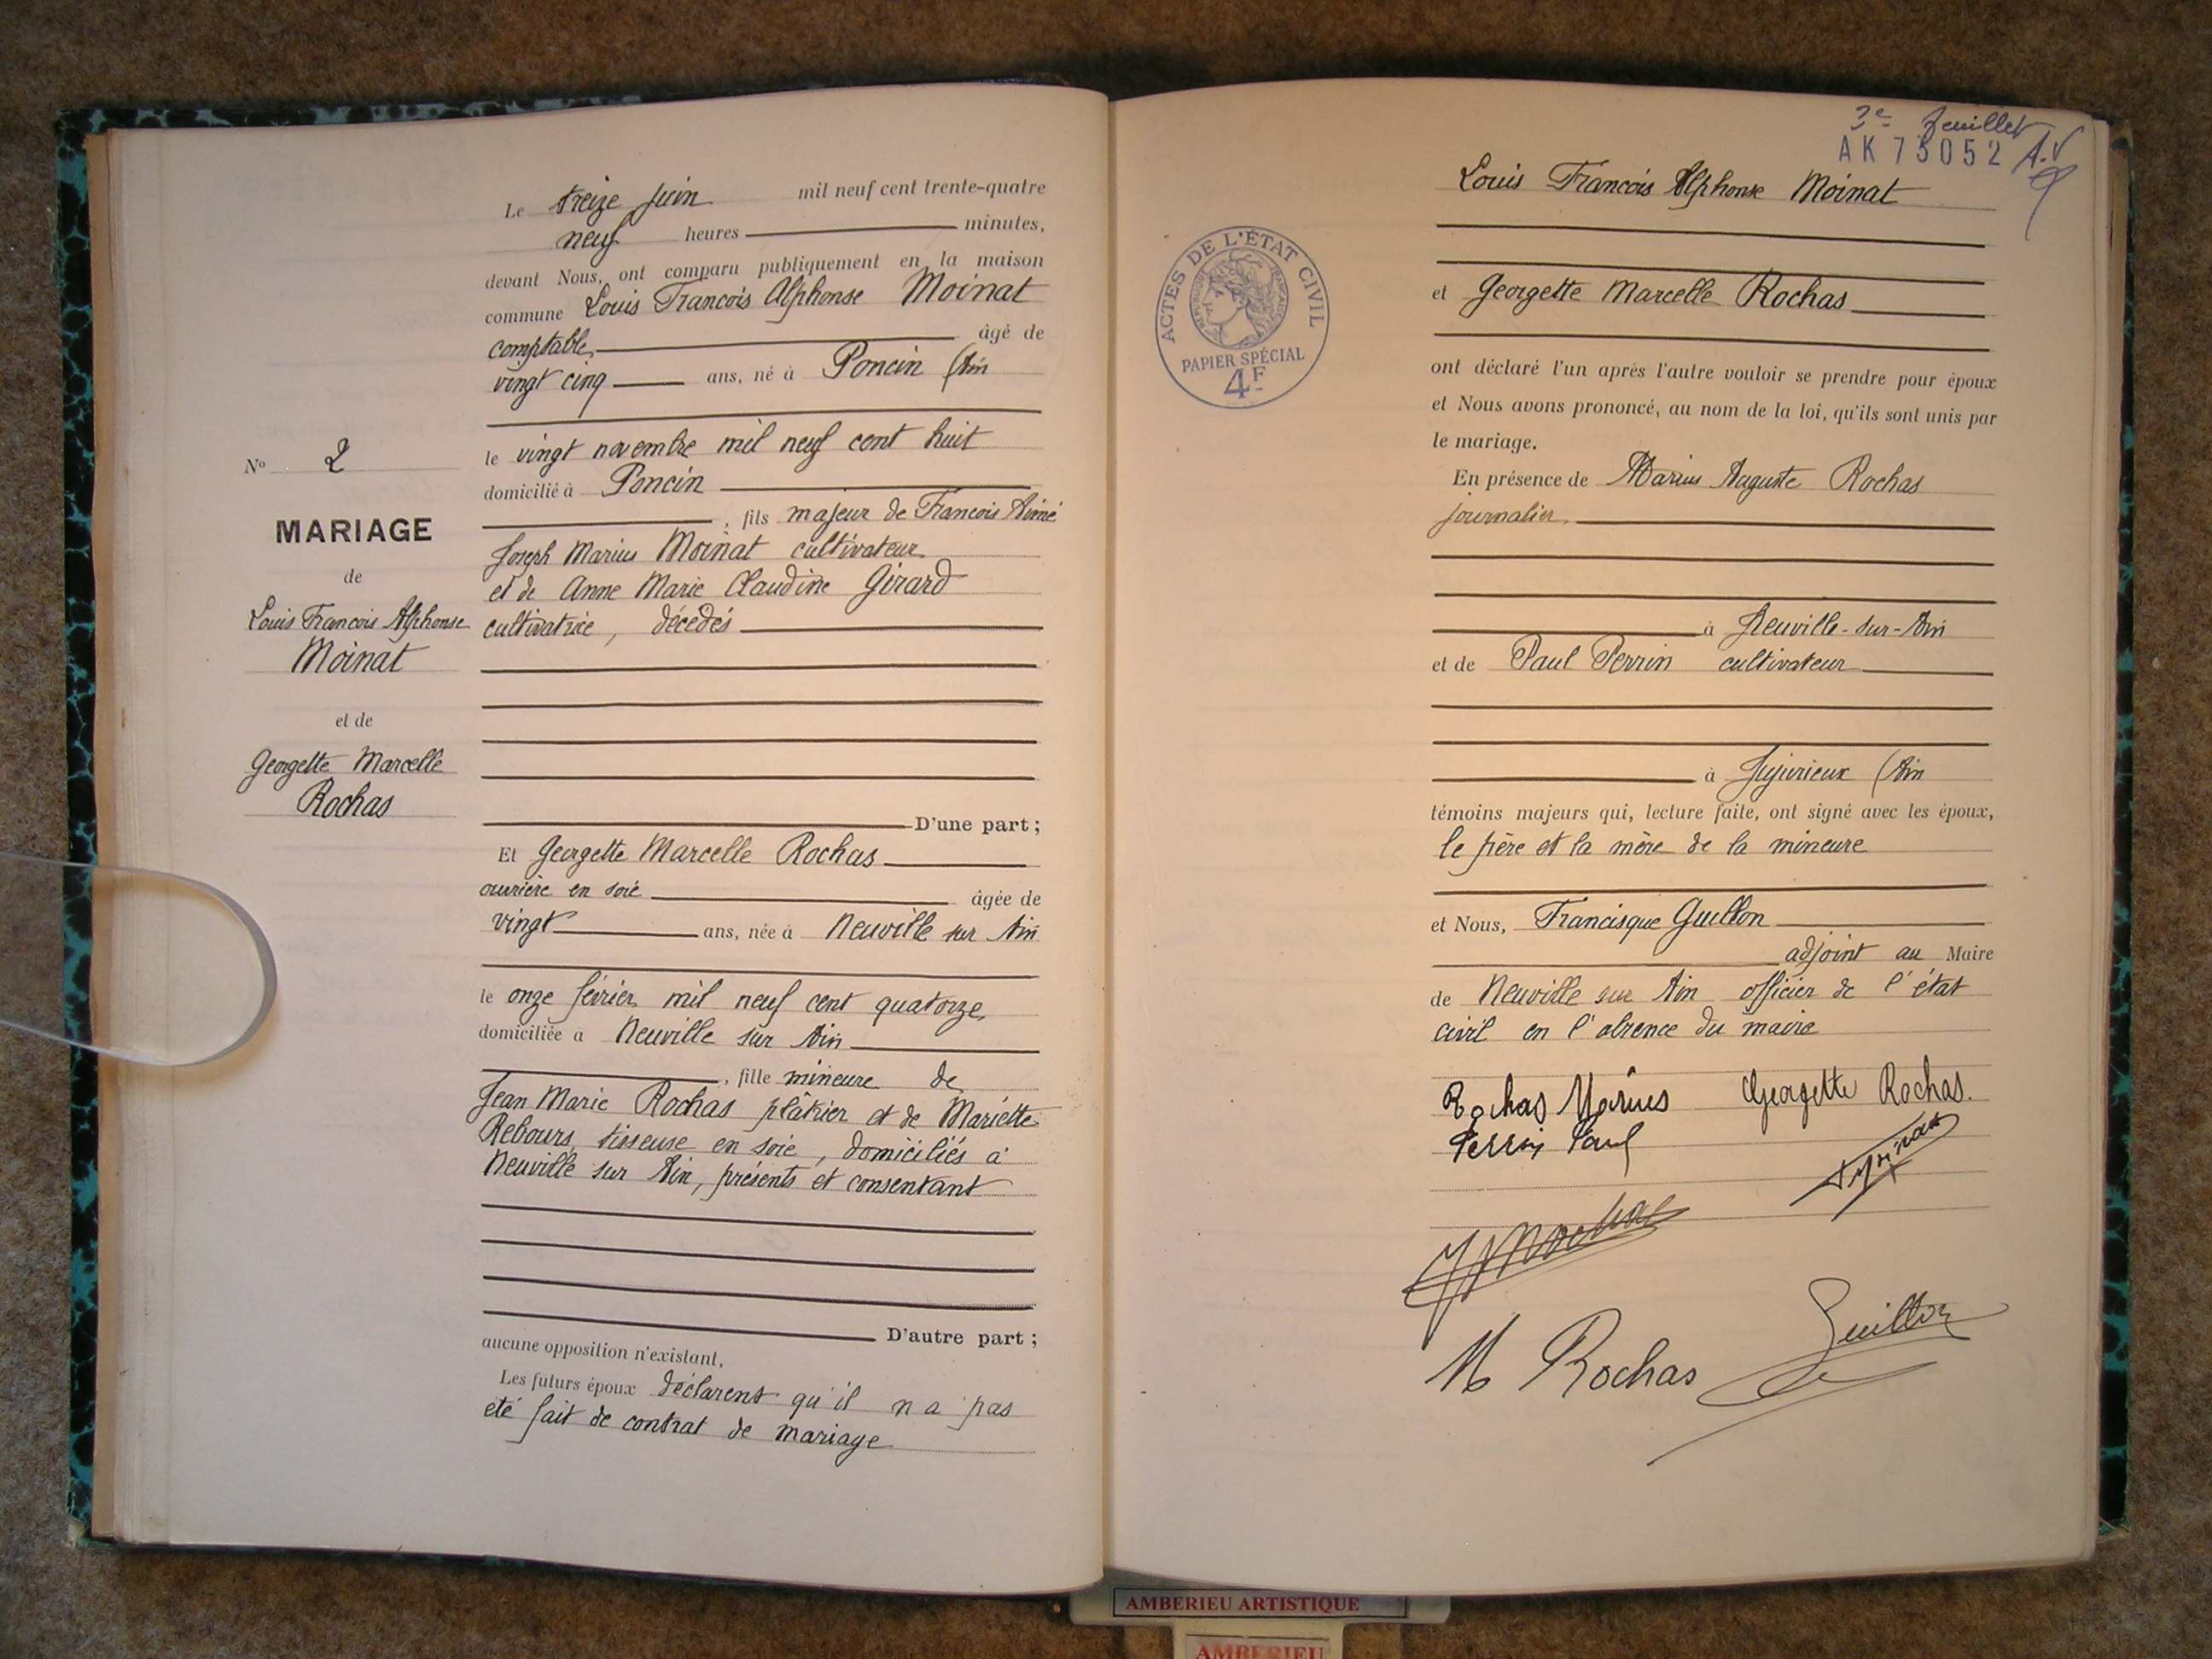 Le treize juin mil neuf cent trente-quatre
neuf heures minutes,
devant Nous, ont comparu publiquement en la maison
commune Louis Francois Alphonse Moinat
comptable âgé de
vingt cinq ans, né à Poncin (Ain
le vingt novembre mil neuf cent huit
domicilié à Poncin
, fils majeur de Francois Aimé
Joseph Marius Moinat cultivateur
et de Anne Marie Claudine Girard
cultivatrice, décédés
D'une part ;
Et Georgette Marcelle Rochas
ouvrière en soie âgée de
vingt ans, née à Neuville sur Ain
le onze février mil neuf cent quatorze
domiciliée à Neuville sur Ain
, fille mineure de
Jean Marie Rochas plâtrier et de Mariette
Rebours tisseuse en soie, domiciliés à
Neuville sur Ain, présents et consentant
D'autre part ;
aucune opposition n'existant,
Les futurs époux déclarent qu'il n a pas
été fait de contrat de mariage
N° 2
MARIAGE
de
Louis Francois Alphonse
Moinat
et de
Georgette Marcelle
Rochas
3e feuillet
AK 73052 A.V
Louis Francois Alphonse Moinat
et Georgette Marcelle Rochas
ont déclaré l'un après l'autre vouloir se prendre pour époux
et Nous avons prononcé, au nom de la loi, qu'ils sont unis par
le mariage.
En présence de Marius Auguste Rochas
journalier
à Neuville-sur-Ain
et de Paul Perrin cultivateur
à Jujurieux (Ain
témoins majeurs qui, lecture faite, ont signé avec les époux,
le père et la mère de la mineure
et Nous, Francisque Guillon
adjoint au Maire
de Neuville sur Ain officier de l'état
civil en l'absence du maire
Rochas Marius Georgette Rochas.
Perrin Paul
Moinat
Rochas
M Rochas Guillon
ACTES DE L'ÉTAT CIVIL
RÉPUBLIQUE FRANÇAISE
PAPIER SPÉCIAL
4F
AMBERIEU ARTISTIQUE
AMBERIEU